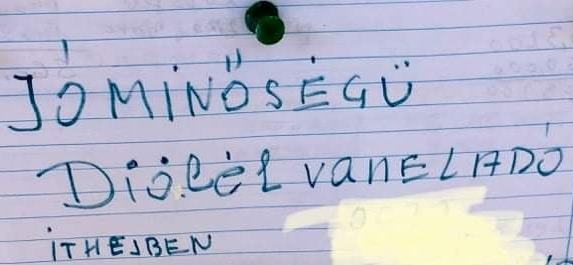 JÓMINŐSÉGÜ
Dióbél vanELADÓ
iTHEJBEN